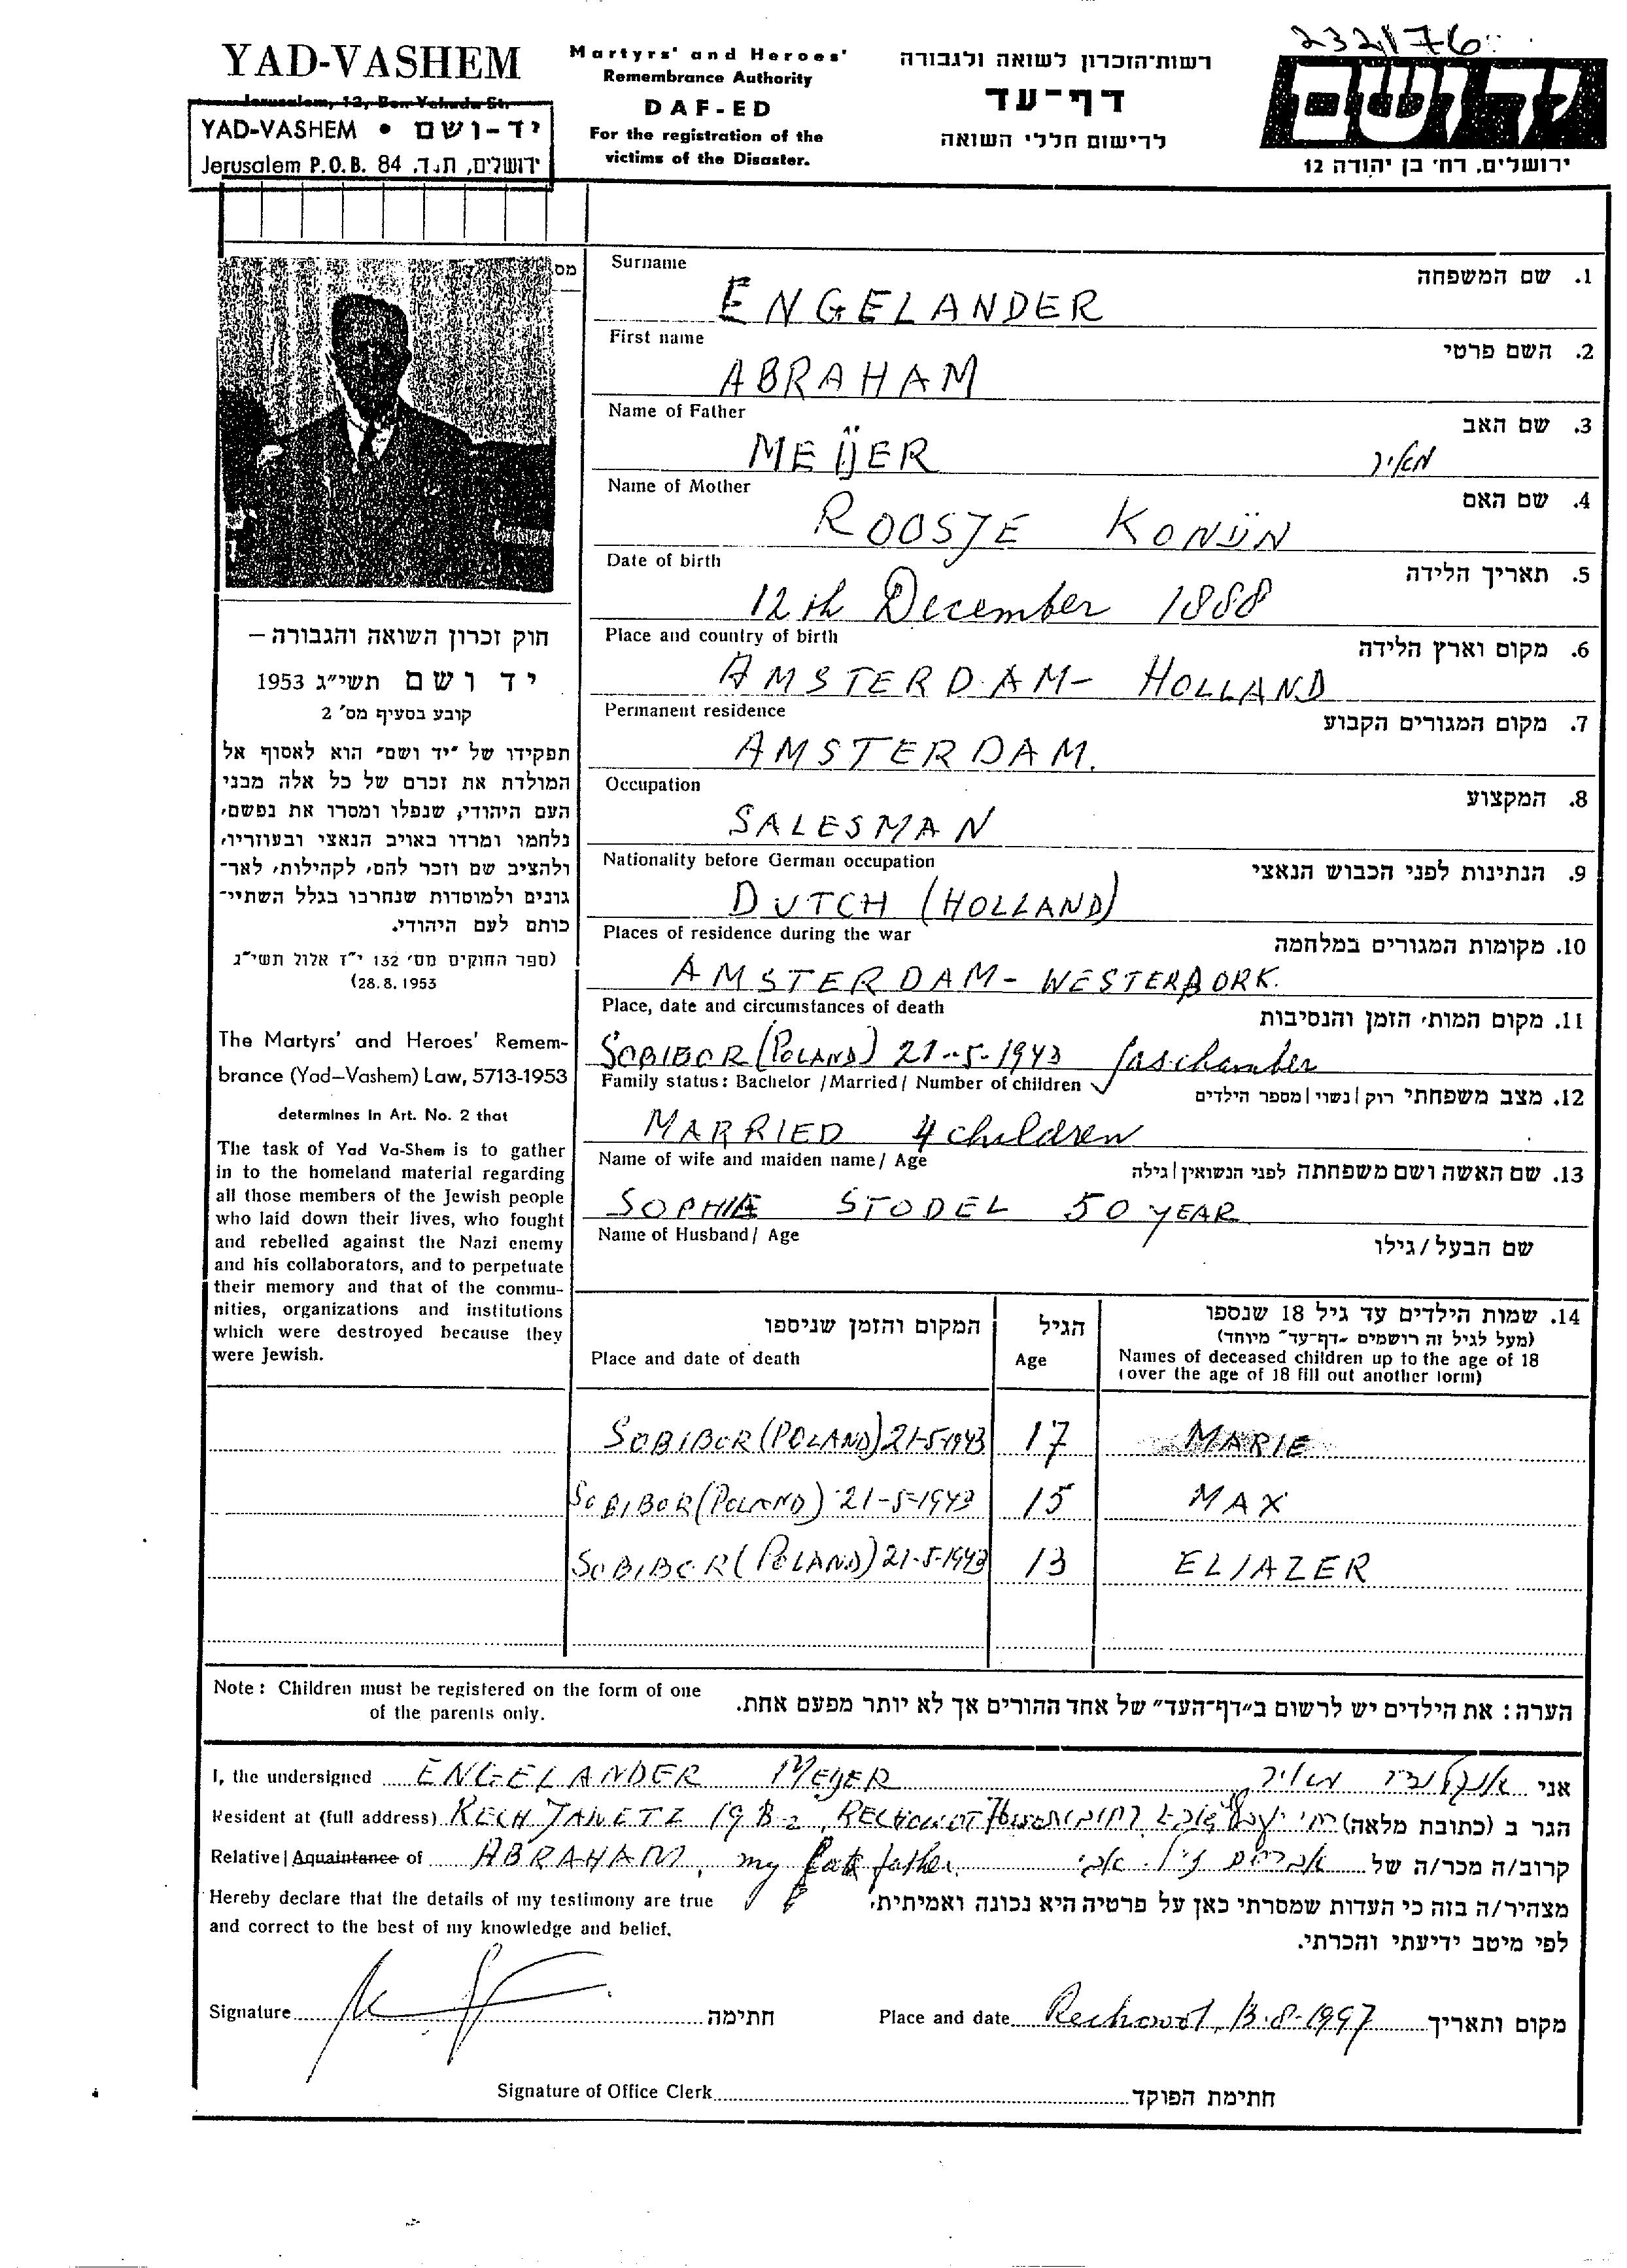 232/176
YAD-VASHEM
Jerusalem, 12, Ben Yehuda St.
YAD-VASHEM • יד-ושם
Jerusalem P.O.B. 84 ירושלים, ת.ד.
Martyrs' and Heroes'
Remembrance Authority
DAF-ED
For the registration of the
victims of the Disaster.
רשות־הזכרון לשואה ולגבורה
דף־עד
לרישום חללי השואה
ירושלים, רח' בן יהודה 12
מס
Surname
1. שם המשפחה
ENGELANDER
First name
2. השם פרטי
ABRAHAM
Name of Father
3. שם האב
MEIJER מאיר
Name of Mother
4. שם האם
ROOSJE KONIJN
Date of birth
5. תאריך הלידה
12th December 1888
Place and country of birth
6. מקום וארץ הלידה
AMSTERDAM- HOLLAND
Permanent residence
7. מקום המגורים הקבוע
AMSTERDAM.
Occupation
8. המקצוע
SALESMAN
Nationality before German occupation
9. הנתינות לפני הכבוש הנאצי
DUTCH (HOLLAND)
Places of residence during the war
10. מקומות המגורים במלחמה
AMSTERDAM- WESTERBORK.
Place, date and circumstances of death
11. מקום המות, הזמן והנסיבות
SOBIBOR (POLAND) 21-5-1943 Gaschamber
Family status: Bachelor / Married / Number of children
12. מצב משפחתי רוק | נשוי | מספר הילדים
MARRIED 4 children
Name of wife and maiden name / Age
13. שם האשה ושם משפחתה לפני הנשואין | גילה
SOPHIA STODEL 50 YEAR
Name of Husband / Age
שם הבעל / גילו
חוק זכרון השואה והגבורה –
יד ושם תשי״ג 1953
קובע בסעיף מס' 2
תפקידו של ״יד ושם״ הוא לאסוף אל
המולדת את זכרם של כל אלה מבני
העם היהודי, שנפלו ומסרו את נפשם,
נלחמו ומרדו באויב הנאצי ובעוזריו,
ולהציב שם וזכר להם, לקהילות, לאר־
גונים ולמוסדות שנחרבו בגלל השתיי־
כותם לעם היהודי.
(ספר החוקים מס' 132 י״ז אלול תשי״ג
(28.8.1953
The Martyrs' and Heroes' Remem-
brance (Yad–Vashem) Law, 5713-1953
determines in Art. No. 2 that
The task of Yad Va-Shem is to gather
in to the homeland material regarding
all those members of the Jewish people
who laid down their lives, who fought
and rebelled against the Nazi enemy
and his collaborators, and to perpetuate
their memory and that of the commu-
nities, organizations and institutions
which were destroyed because they
were Jewish.
14. שמות הילדים עד גיל 18 שנספו
(מעל לגיל זה רושמים ״דף־עד״ מיוחד)
Names of deceased children up to the age of 18
(over the age of 18 fill out another form)
הגיל
Age
המקום והזמן שניספו
Place and date of death
SOBIBOR (POLAND) 21-5-1943 17 MARIE
SOBIBOR (POLAND) 21-5-1943 15 MAX
SOBIBOR (POLAND) 21-5-1943 13 ELIAZER
Note: Children must be registered on the form of one
of the parents only.
הערה: את הילדים יש לרשום ב״דף־העד״ של אחד ההורים אך לא יותר מפעם אחת.
I, the undersigned ENGELANDER MEIJER אנגלנדר מאיר אני
Resident at (full address) RECH JANETZ 19B-2, RECHOWOT הגר ב (כתובת מלאה)
Relative | Aquaintance of ABRAHAM, my father אברהם ז״ל אבי קרוב/ה מכר/ה של
Hereby declare that the details of my testimony are true
and correct to the best of my knowledge and belief.
מצהיר/ה בזה כי העדות שמסרתי כאן על פרטיה היא נכונה ואמיתית,
לפי מיטב ידיעתי והכרתי.
Signature חתימה
Place and date Rechowot, 13.8.1997 מקום ותאריך
Signature of Office Clerk חתימת הפוקד